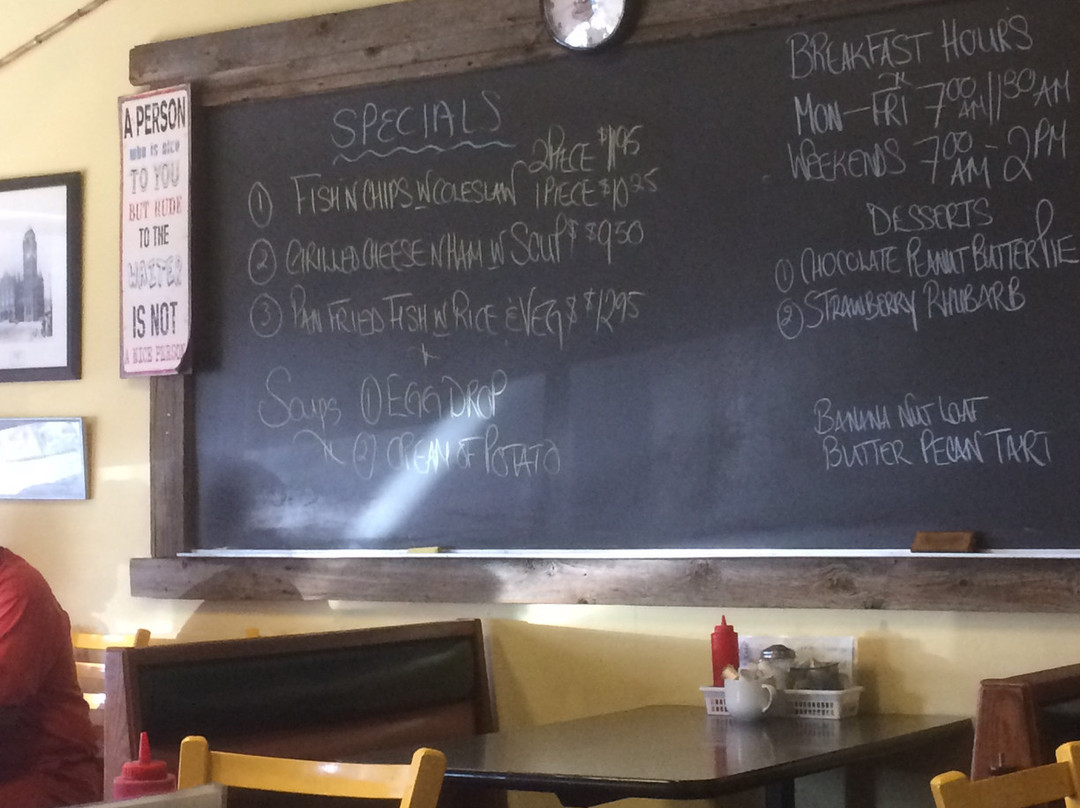 A PERSON
WHO IS NICE
TO YOU
BUT RUDE
TO THE
WAITER
IS NOT
A NICE PERSON
SPECIALS
2 PIECE $11.95
① FISH N CHIPS W COLESLAW 1 PIECE $10.25
② GRILLED CHEESE N HAM W SOUP $ $9.50
③ PAN FRIED FISH W RICE & VEG $ $12.95
Soups ① EGG DROP
② CREAM OF POTATO
BREAKFAST HOURS
MON — FRI 7:00 AM 11:30 AM
WEEKENDS 7:00 AM - 2 PM
DESSERTS
① CHOCOLATE PEANUT BUTTER PIE
② STRAWBERRY RHUBARB
BANANA NUT LOAF
BUTTER PECAN TART